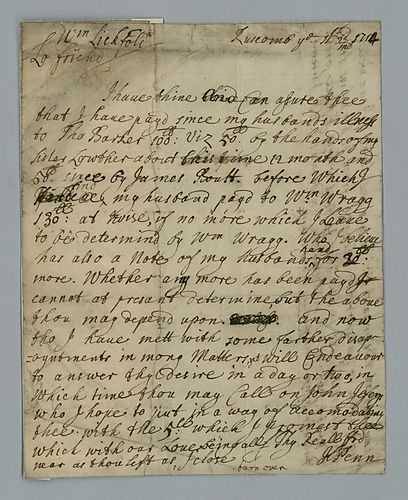 Wm Lickfold
Lo friend
Ruscomb ye 2d mo 1714
I have thine And Can asure thee
that I have payd since my husbands illness
to Tho Barker 100: Viz 50 by the hands of my
Sister Lowther about this time 12 month and
50 since by James Froutt. before Which I
find my husband payd to Wm Wragg
130: at twise, & no more which I Leave
to be determind by Wm Wragg. Who I believe
has also a Note of my husbands hand for 30
more. Whether any more has been payd I
cannot at presant determine, but the above
thou may depend upon. and now
tho I have mett with some farther disap-
oyntments in mony Matters, I Will Endeavour
to answer thy desire in a day or two, in
Which time thou may Call on John
who I hope to put in a way of Accomodating
thee with the 5 which I promest thee
which with our Love is in all, Thy Reall frd
near as thou left us, I close
J Penn
turn over